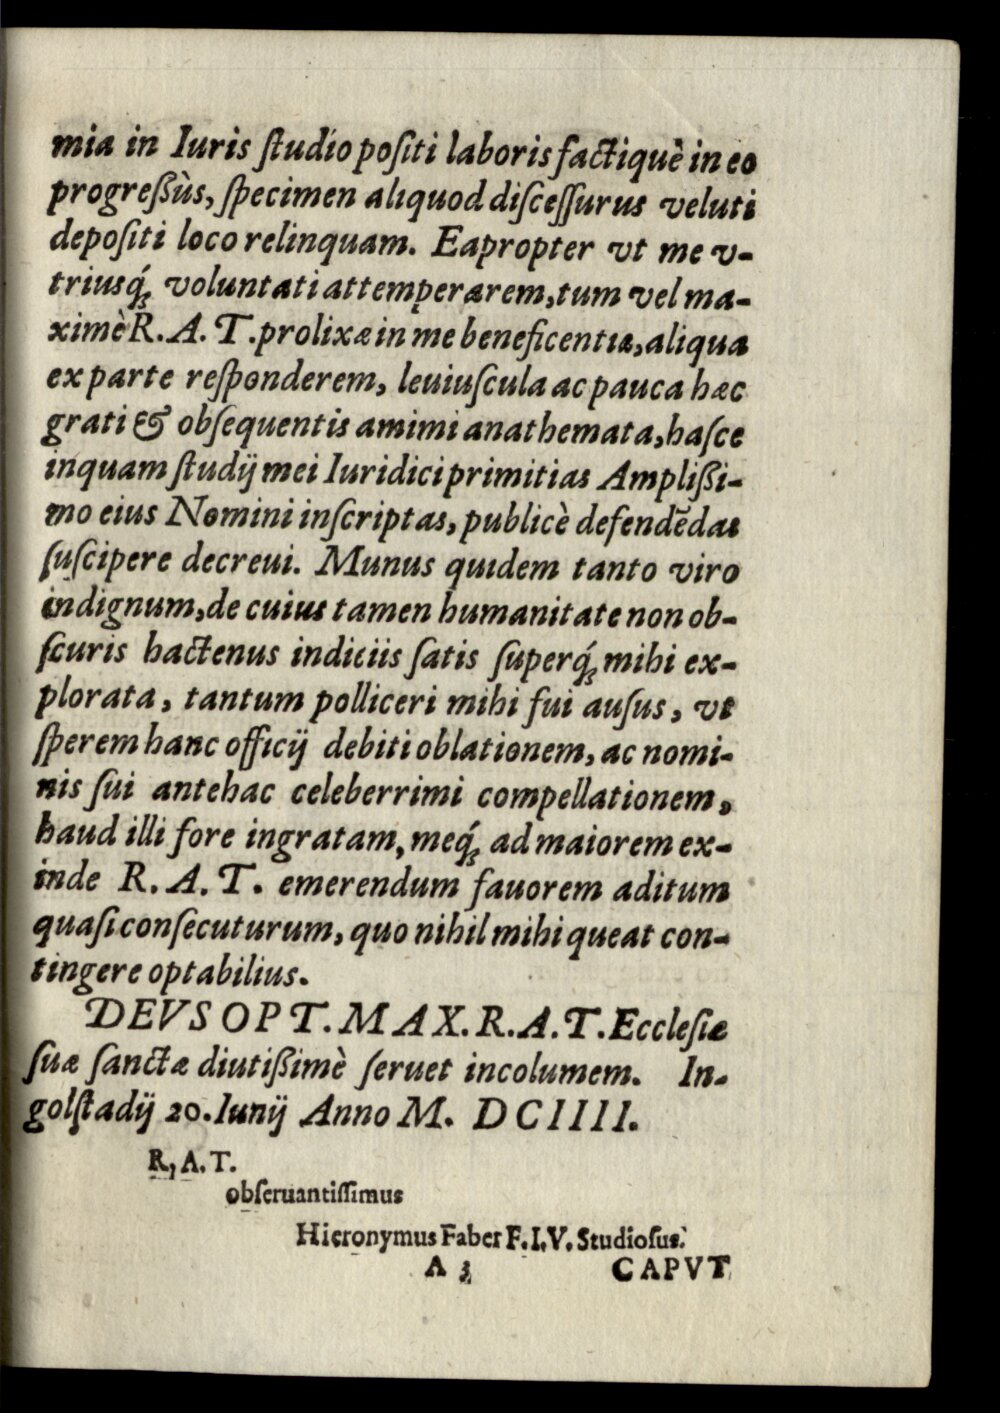 mia in Iuris ſtudio poſiti laboris factiquè in eo
progreßùs, ſpecimen aliquod diſceſſurus veluti
depoſiti loco relinquam. Eapropter vt me v-
triusq́; voluntati attemperarem, tum vel ma-
ximè R. A. T. prolixæ in me beneficentiæ, aliqua
ex parte reſponderem, leuiuſcula ac pauca hæc
grati & obſequentis amimi anathemata, haſce
inquam ſtudij mei Iuridici primitias Amplißi-
mo eius Nomini inſcriptas, publicè defendēdas
ſuſcipere decreui. Munus quidem tanto viro
indignum, de cuius tamen humanitate non ob-
ſcuris hactenus indiciis ſatis ſuperq́; mihi ex-
plorata, tantum polliceri mihi fui auſus, vt
ſperem hanc officij debiti oblationem, ac nomi-
nis ſui antehac celeberrimi compellationem,
haud illi fore ingratam, meq́; ad maiorem ex-
inde R. A. T. emerendum fauorem aditum
quaſi conſecuturum, quo nihil mihi queat con-
tingere optabilius.
DEVS OPT. MAX. R. A. T. Eccleſiæ
ſuæ ſanctæ diutißimè ſeruet incolumem. In-
golſtadij 20. Iunij Anno M. DCIIII.
R, A. T.
obſeruantiſſimus
Hieronymus Faber F. I. V. Studioſus.
A 3
CAPVT